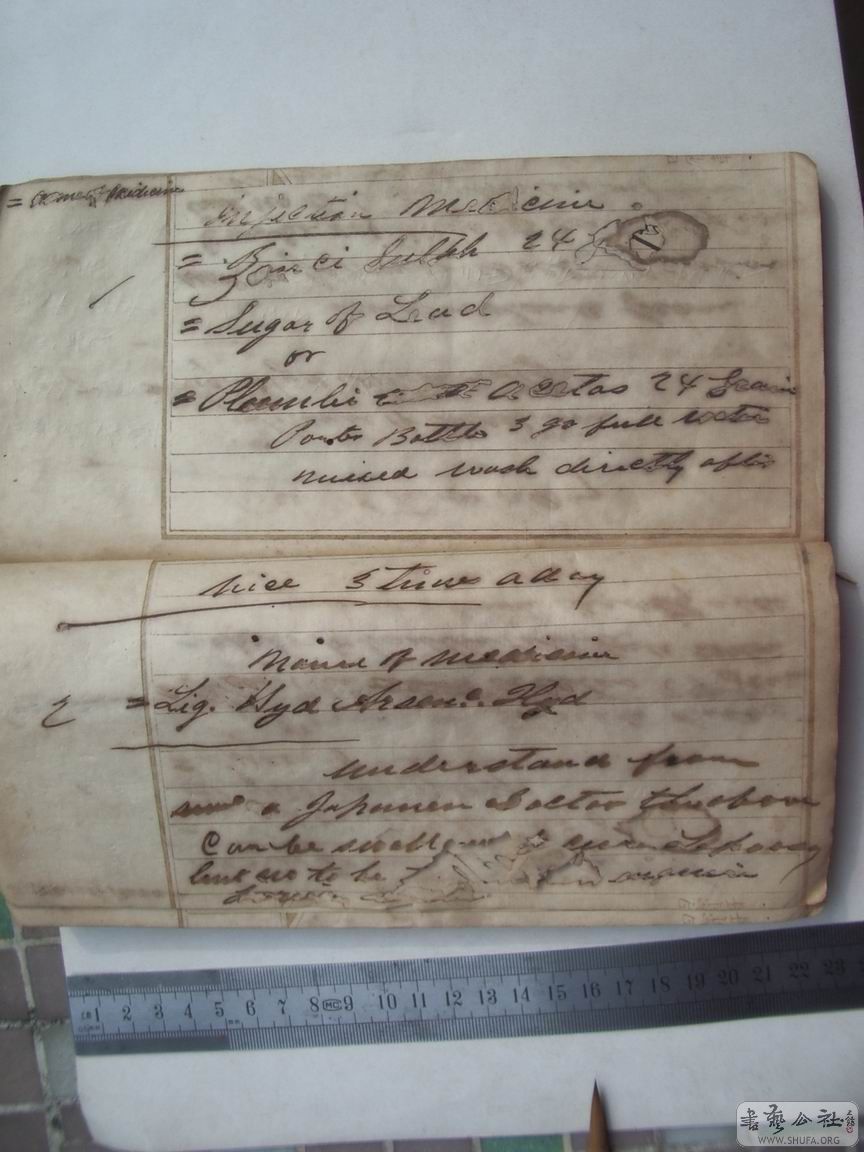 = Name of Medicine
Injection Medicine
= Zinci Sulph 24
= Sugar of Lead
or
= Plumbi Acetas 24 Grain
Bottle 3 go full water
mixed wash directly after
3 times a day
Name of medicine
2 = Liq. Hyd Arseni. Hyd
understand from
a Japanese Doctor the above
Can be cure Leprosy
to be
1 2 3 4 5 6 7 8 MC 9 10 11 12 13 14 15 16 17 18 19 20 21 22 23
書藝公社
WWW.SHUFA.ORG